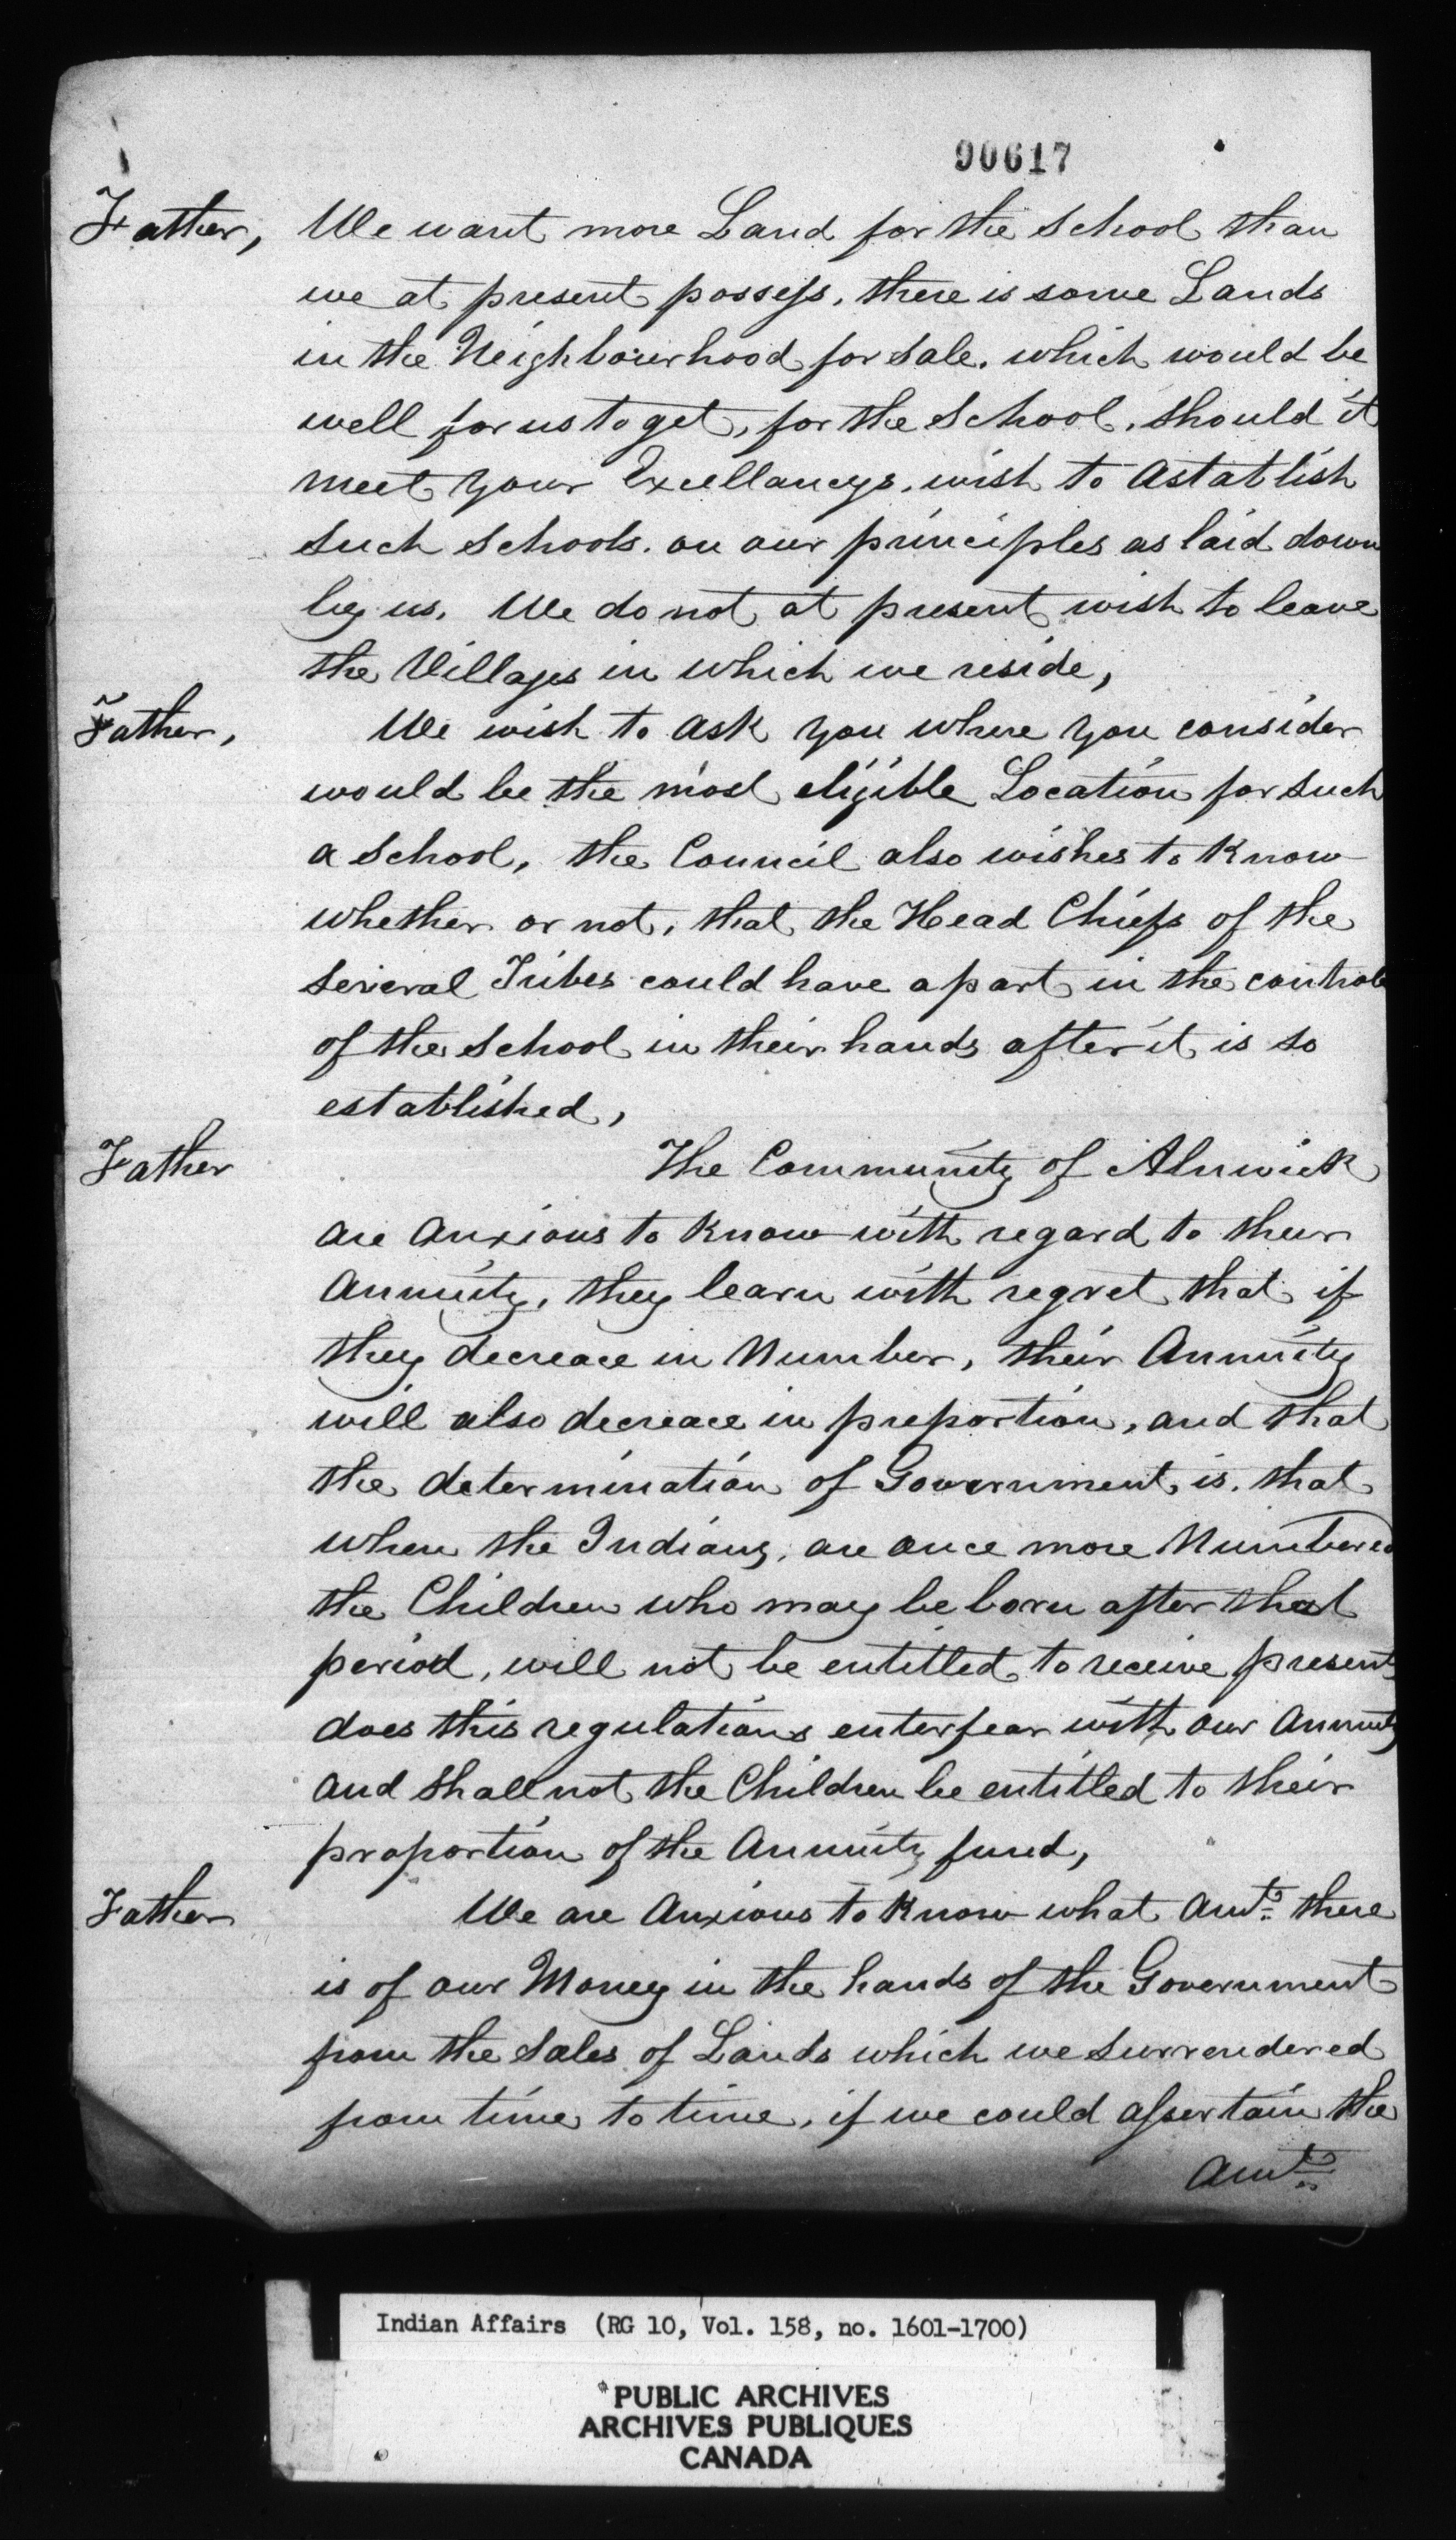 90617
Father, We want more Land for the School than
we at present possess, there is some Lands
in the Neighbourhood for sale. which would be
well for us to get, for the School, should it
meet your Excellancys. wish to Astablish
such Schools. on our principles as laid down
by us. We do not at present wish to leave
the Villages in which we reside,
Father, We wish to ask you where you consider
would be the most eligible Location for such
a School, the Council also wishes to Know
whether or not, that the Head Chiefs of the
several Tribes could have a part in the controle
of the School in their hands after it is so
established,
Father The Community of Alnwick
are Anxious to Know with regard to their
Annuity, they learn with regret that if
they decreace in Number, their Annuity
will also decreace in preportion, and that
the determination of Government, is. that
when the Indians, are once more Numbered
the Children who may be born after that
period, will not be entitled to receive presents
does this regulations enterfear with our Annuity
and shall not the Children be entitled to their
proportion of the Annuity fund,
Father We are Anxious to Know what Amt. there
is of our Money in the hands of the Government
from the Sales of Lands which we surrendered
from time to time, if we could assertain the
Amt.
Indian Affairs (RG 10, Vol. 158, no. 1601-1700)
PUBLIC ARCHIVES
ARCHIVES PUBLIQUES
CANADA